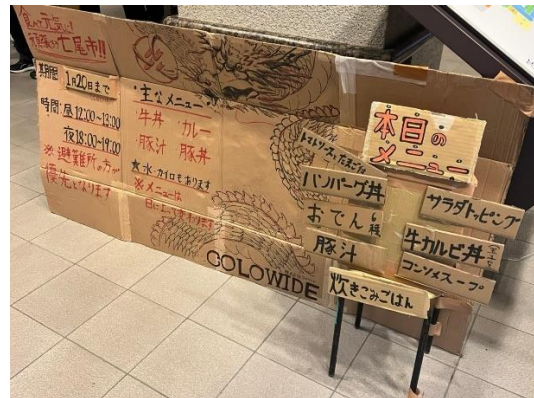 食べて元気に!
頑張ろう七尾市!!
期間 1月20日まで
時間:昼12:00~13:00
夜18:00~19:00
※避難所の方が
優先となります
・主なメニュー・
牛丼 カレー
豚汁 豚丼
★水・カイロもあります
※メニューは
日によって変わります
COLOWIDE
本日の
メニュー
ハンバーグ丼
おでん6種
豚汁
炊きこみごはん
サラダトッピング
牛カルビ丼
コンソメスープ